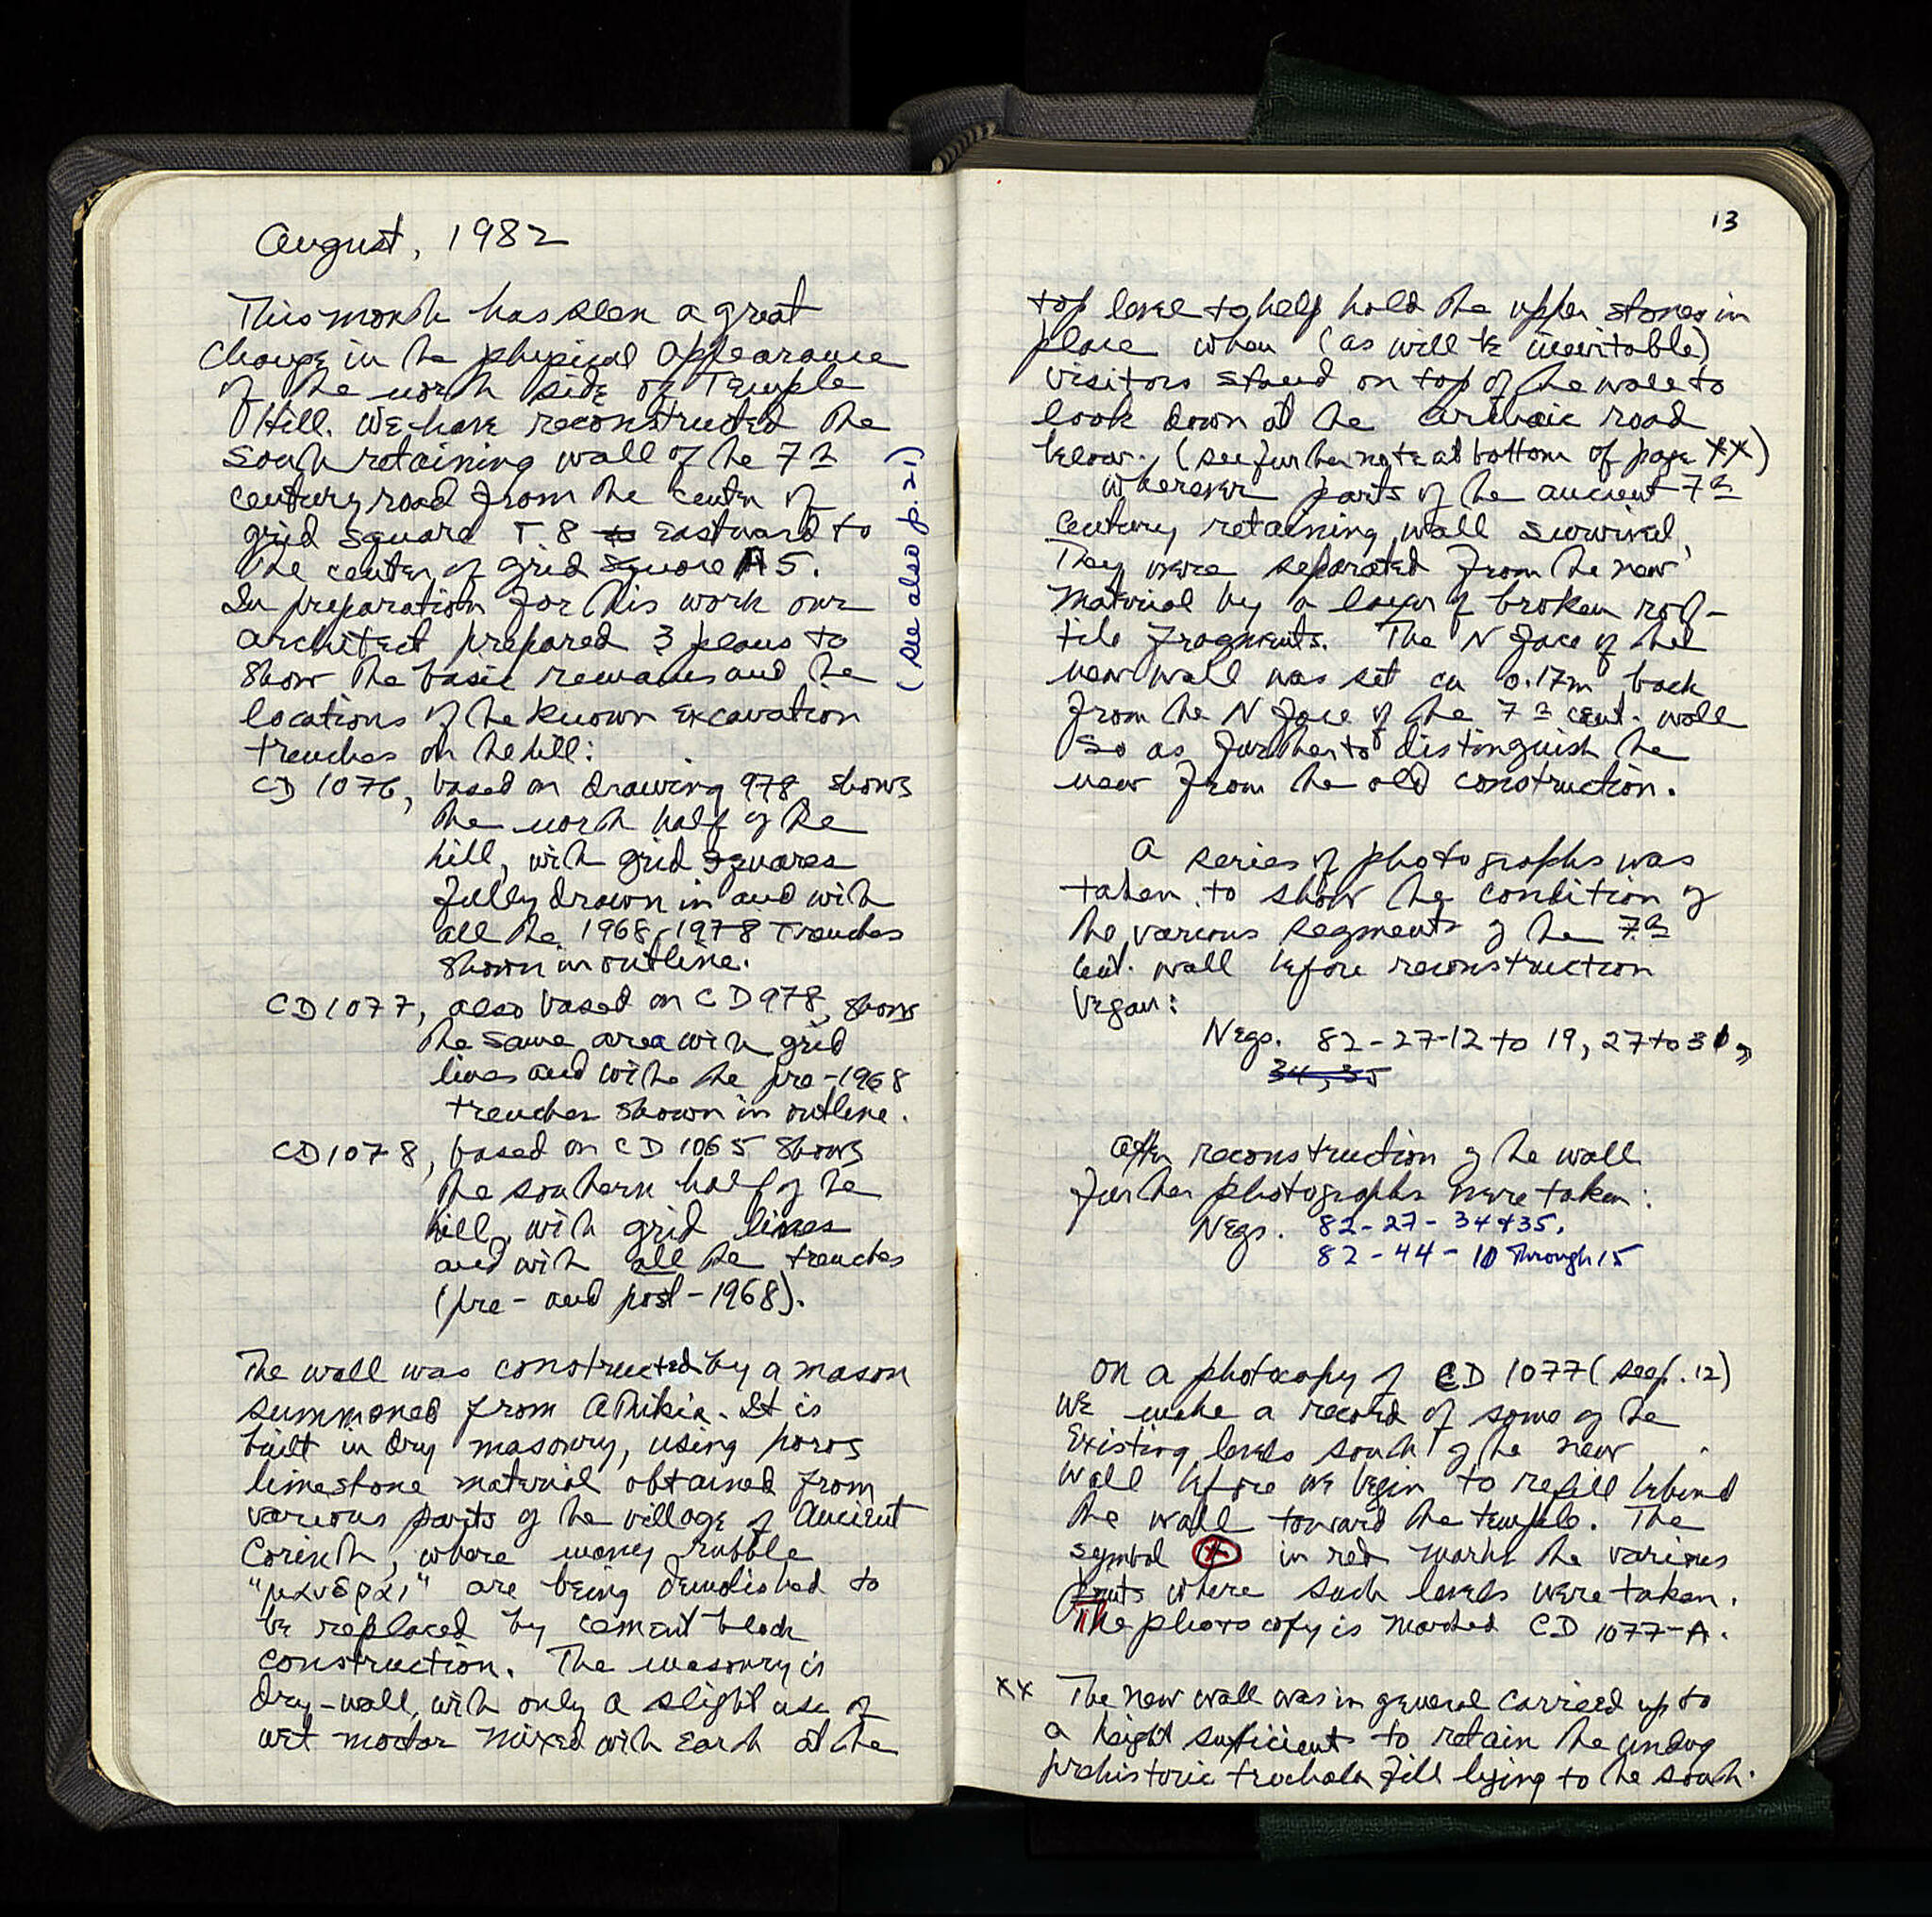 August, 1982
This month has seen a great
change in the physical appearance
of the north side of Temple
Hill. We have reconstructed the
south retaining wall of the 7th
century road from the center of
grid square T 8 to eastward to
the center of grid square A 5.
In preparation for this work our
architect prepared 3 plans to
show the basic remains and the
locations of the known excavation
trenches on the hill:
(see also p. 21)
CD 1076, based on drawing 978 shows
the north half of the
hill, with grid squares
fully drawn in and with
all the 1968-1978 trenches
shown in outline.
CD 1077, also based on CD 978, shows
the same area with grid
lines and with the pre-1968
trenches shown in outline.
CD 1078, based on CD 1065 shows
the southern half of the
hill, with grid lines
and with all the trenches
(pre- and post-1968).
The wall was constructed by a mason
summoned from Athikia. It is
built in dry masonry, using poros
limestone material obtained from
various parts of the village of Ancient
Corinth, where many rubble
"μανδραι" are being demolished to
be replaced by cement block
construction. The masonry is
dry-wall, with only a slight use of
wet mortar mixed with earth at the
13
top level to help hold the upper stones in
place when (as will be inevitable)
visitors stand on top of the wall to
look down at the archaic road
below. (see further note at bottom of page XX)
Wherever parts of the ancient 7th
century retaining wall survived,
they were separated from the new
material by a layer of broken roof-
tile fragments. The N face of the
new wall was set ca 0.17m back
from the N face of the 7th cent. wall
so as further to distinguish the
new from the old construction.
A series of photographs was
taken to show the condition of
the various segments of the 7th
cent. wall before reconstruction
began:
Negs. 82-27-12 to 19, 27 to 31,
34, 35
After reconstruction of the wall
further photographs were taken:
Negs. 82-27-34+35.
82-44-10 through 15
On a photocopy of CD 1077 (see p. 12)
we make a record of some of the
existing levels south of the new
wall before we begin to refill behind
the wall toward the temple. The
symbol in red marks the various
points where such levels were taken.
The photocopy is marked CD 1077-A.
XX The new wall was in general carried up to
a height sufficient to retain the undug
prehistoric fill lying to the south.